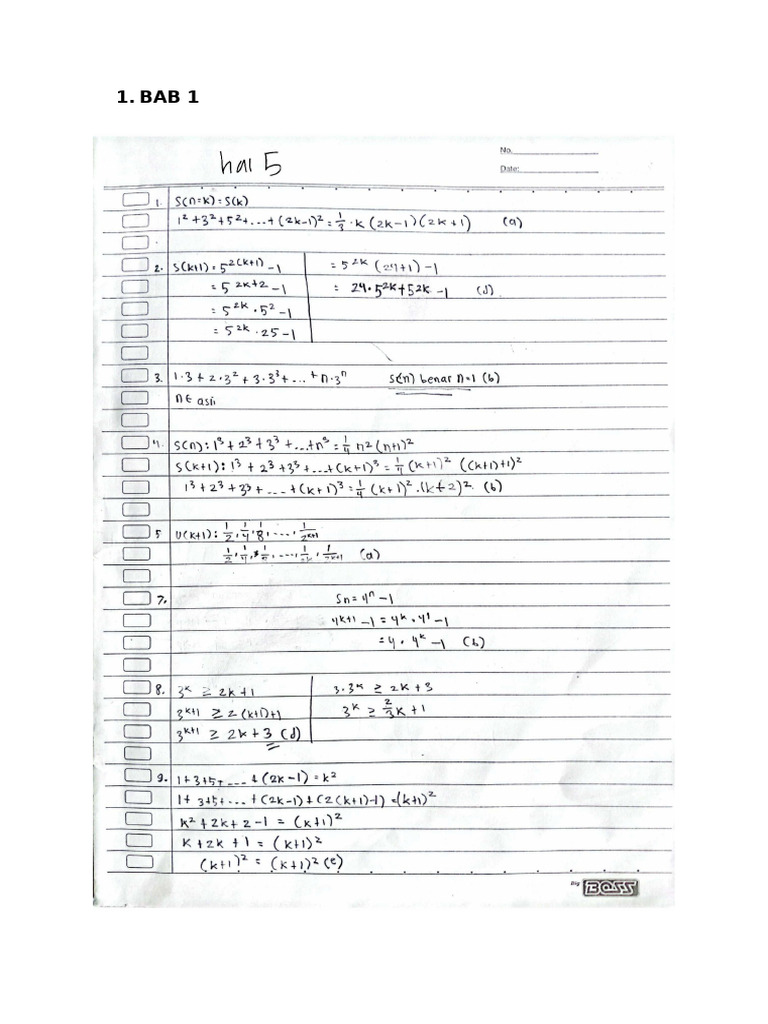 1. BAB 1
hal 5
No.
Date:
1. S(n=k) = S(k)
1² + 3² + 5² + ... + (2k-1)² = 1/3 · k (2k-1)(2k+1) (a)
2. S(k+1) = 5^2(k+1) - 1
= 5^2k+2 - 1
= 5^2k · 5² - 1
= 5^2k · 25 - 1
= 5^2k (24+1) - 1
= 24 · 5^2k + 5^2k - 1 (d)
3. 1·3 + 2·3² + 3·3³ + ... + n·3^n S(n) benar n=1 (b)
n ∈ asli
4. S(n) : 1³ + 2³ + 3³ + ... + n³ = 1/4 n² (n+1)²
S(k+1) : 1³ + 2³ + 3³ + ... + (k+1)³ = 1/4 (k+1)² ((k+1)+1)²
1³ + 2³ + 3³ + ... + (k+1)³ = 1/4 (k+1)² · (k+2)² (b)
5 U(k+1) : 1/2, 1/4, 1/8, ..., 1/2^k+1
1/2, 1/4, 1/8, ..., 1/2^k, 1/2^k+1 (a)
7. Sn = 4^n - 1
4^k+1 - 1 = 4^k · 4^1 - 1
= 4 · 4^k - 1 (b)
8. 3^k ≥ 2k+1
3^k+1 ≥ 2(k+1)+1
3^k+1 ≥ 2k+3 (d)
3·3^k ≥ 2k+3
3^k ≥ 2/3k + 1
9. 1+3+5+ ... + (2k-1) = k²
1+3+5+ ... + (2k-1) + (2(k+1)-1) = (k+1)²
k² + 2k + 2 - 1 = (k+1)²
k + 2k + 1 = (k+1)²
(k+1)² = (k+1)² (e)
Big BOSS